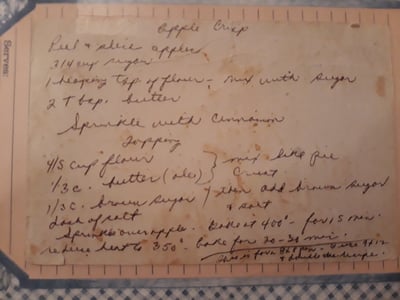 Serves:
Apple Crisp
Peel & slice apples
3/4 cup sugar
1 heaping tsp of flour - mix with sugar
2 Tbsp. butter
Sprinkle with cinnamon
Topping
4/5 cup flour } mix like pie
1/3 c. butter (oleo) crust
1/3 c. brown sugar } then add brown sugar
dash of salt & salt
Sprinkle over apple. Bake at 400° - for 15 min.
reduce heat to 350° bake for 20-30 min.
This is for a pan. I use 9x13
& double the recipe.